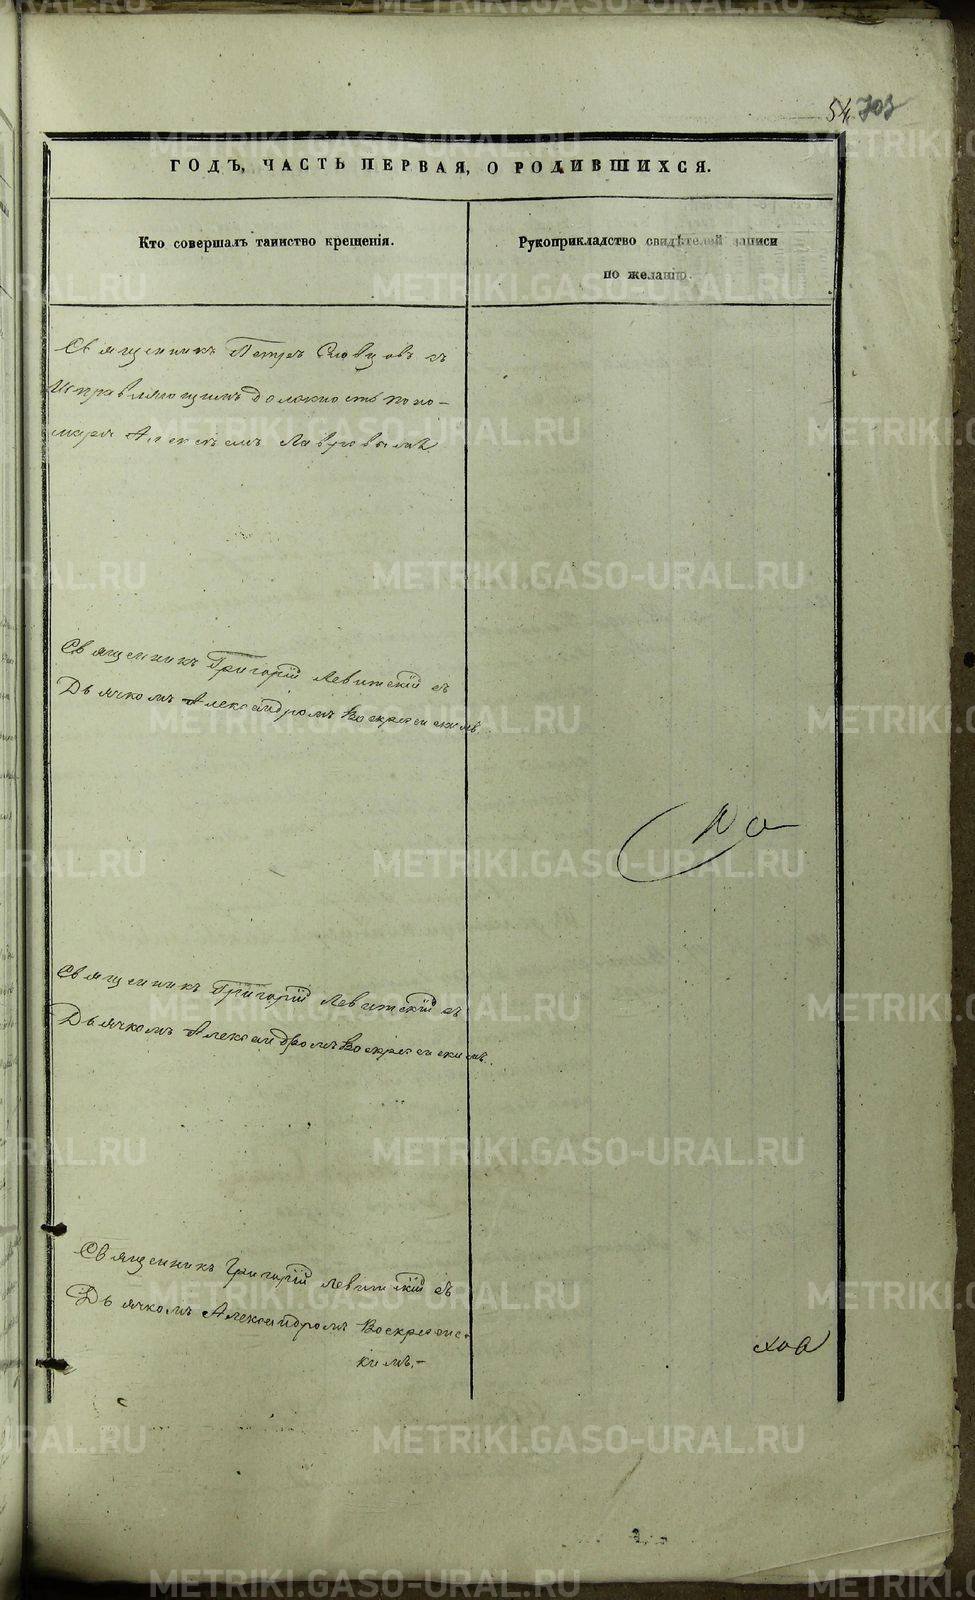 54. 703
ГОДЪ, ЧАСТЬ ПЕРВАЯ, О РОДИВШИХСЯ.
Кто совершалъ таинство крещенія.
Рукоприкладство свидѣтелей записи
по желанію.
Священникъ Петръ Словцовъ съ
Исправляющимъ должность поно-
маря Алексѣемъ Лавровымъ
Священникъ Григорій Левитскій съ
Дьячкомъ Александромъ Воскресенскимъ.
Священникъ Григорій Левитскій съ
Дьячкомъ Александромъ Воскресенскимъ.
Священникъ Григорій Левитскій съ
Дьячкомъ Александромъ Воскресенс-
кимъ.-
METRIKI.GASO-URAL.RU